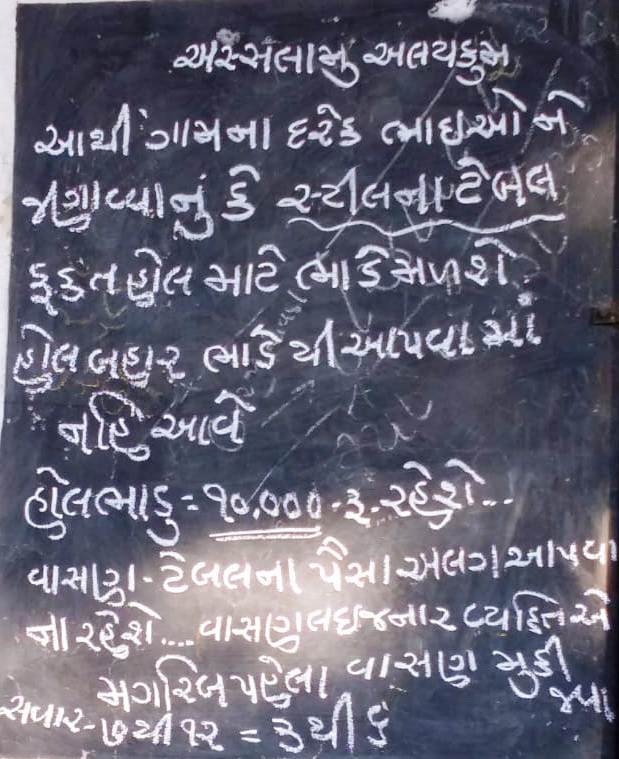 અસ્સલામુ અલયકુમ
આથી ગામના દરેક ભાઇઓ ને
જાણાવ્વાનું કે સ્ટીલના ટેબલ
ફકત હોલ માટે ભાડે મળશે.
હોલ બહાર ભાડે થી આપવા માં
નહિ આવે
હોલભાડુ = ૧૦,૦૦૦ - રૂ. રહેશે...
વાસણ - ટેબલના પૈસા અલગ આપવા
ના રહેશે.... વાસણ લઇ જનાર વ્યકિત એ
મગરિબ પહેલા વાસણ મુકી
જવા
સવાર - ૭ થી ૧૨ = ૩ થી ૬